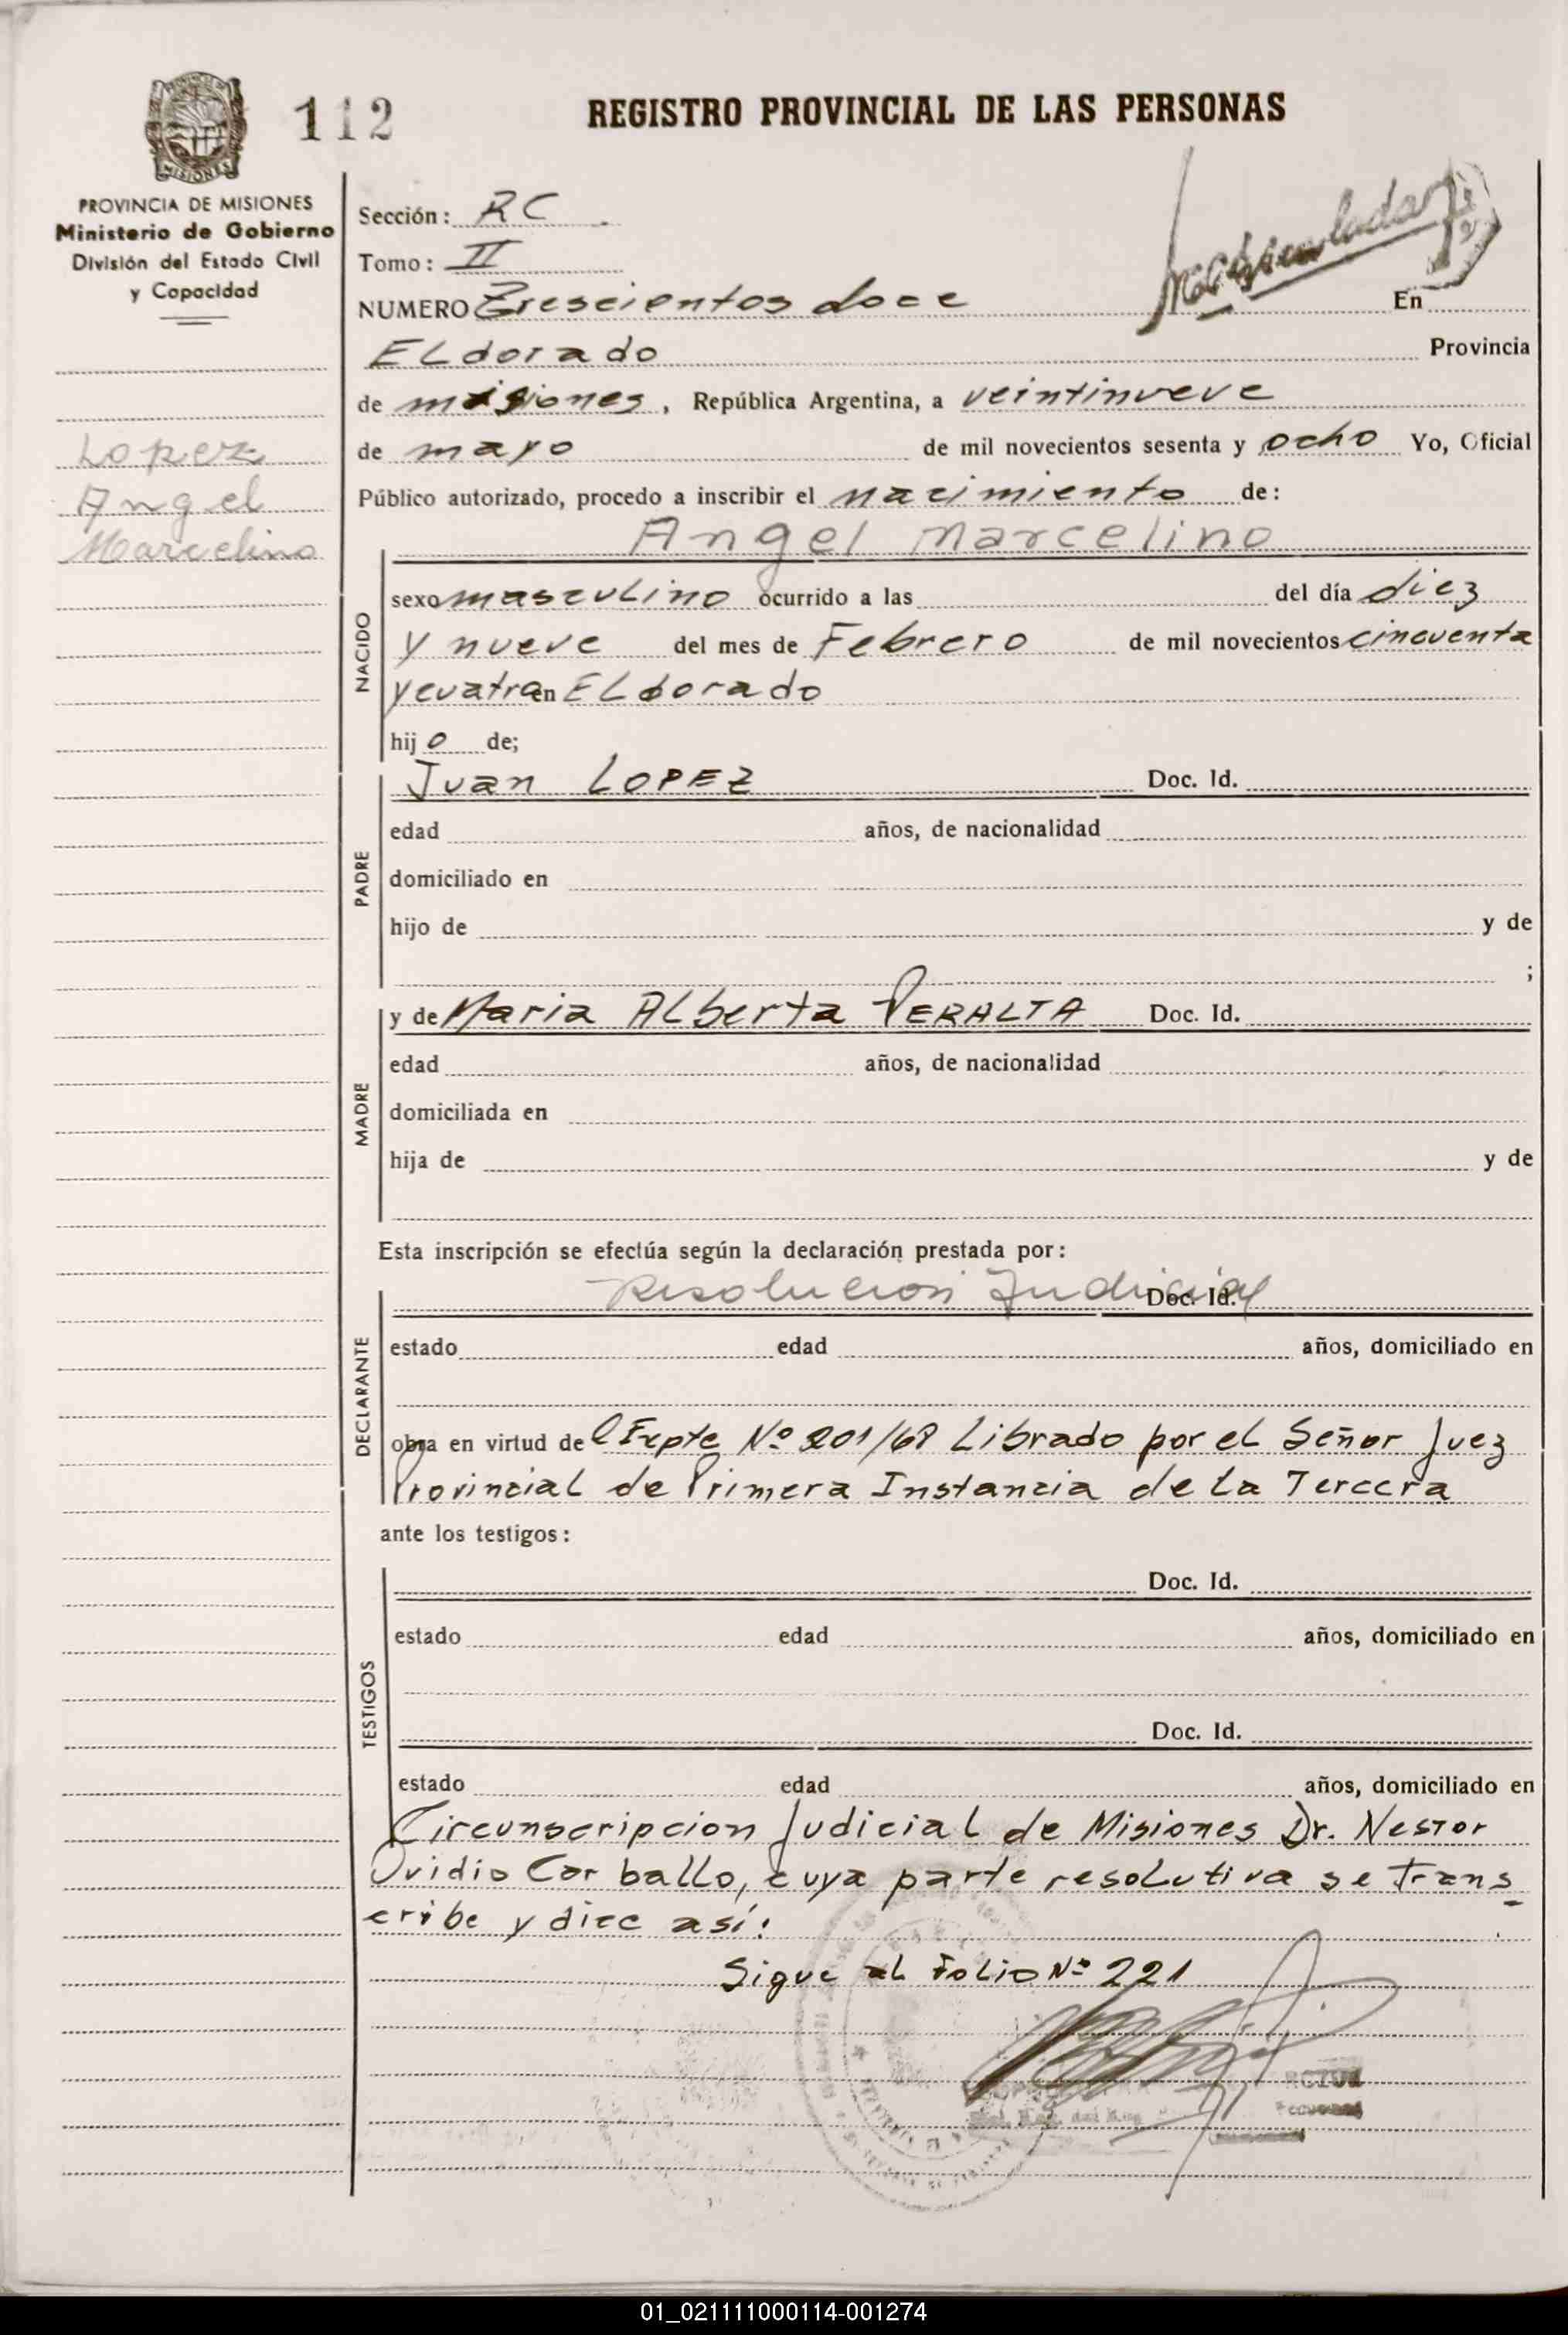 112
REGISTRO PROVINCIAL DE LAS PERSONAS
MISIONES
PROVINCIA DE MISIONES
Ministerio de Gobierno
División del Estado Civil
y Capacidad
Lopez
Angel
Marcelino
Sección: RC
Tomo: II
NUMERO Trescientos doce En
ELdorado Provincia
de misiones, República Argentina, a veintinueve
de mayo de mil novecientos sesenta y ocho Yo, Oficial
Público autorizado, procedo a inscribir el nacimiento de:
Angel Marcelino
NACIDO
sexo masculino ocurrido a las del día diez
y nueve del mes de Febrero de mil novecientos cincuenta
y cuatro en ELdorado
hijo de;
PADRE
Juan LOPEZ Doc. Id.
edad años, de nacionalidad
domiciliado en
hijo de y de
;
MADRE
y de Maria ALberta PERALTA Doc. Id.
edad años, de nacionalidad
domiciliada en
hija de y de
Esta inscripción se efectúa según la declaración prestada por:
DECLARANTE
Resolucion Judicial Doc. Id.
estado edad años, domiciliado en
obra en virtud del Expte Nº 201/68 Librado por el Señor Juez
Provincial de Primera Instancia de La Tercera
ante los testigos:
TESTIGOS
Doc. Id.
estado edad años, domiciliado en
Doc. Id.
estado edad años, domiciliado en
Circunscripcion Judicial de Misiones Dr. Nestor
Ovidio Carballo, cuya parte resolutiva se trans
cribe y dice así:
Sigue al Folio Nº 221
01_021111000114-001274